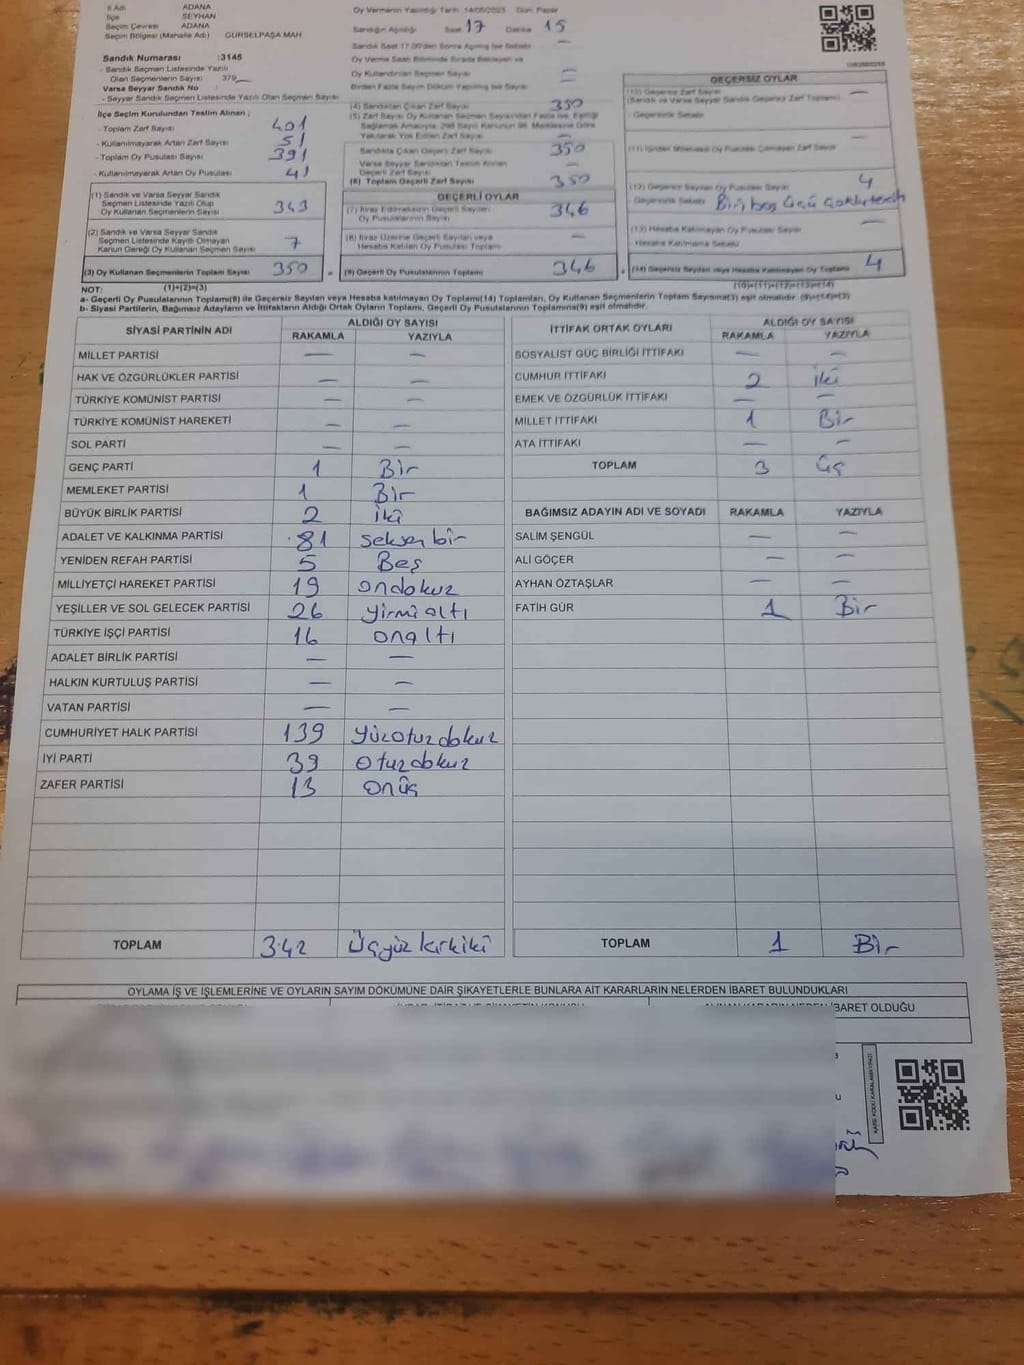 İl Adı ADANA
İlçe SEYHAN
Seçim Çevresi ADANA
Seçim Bölgesi (Mahalle Adı) GÜRSELPAŞA MAH
Sandık Numarası :3146
- Sandık Seçmen Listesinde Yazılı
Olan Seçmenlerin Sayısı 379
Varsa Seyyar Sandık No :
- Seyyar Sandık Seçmen Listesinde Yazılı Olan Seçmen Sayısı
İlçe Seçim Kurulundan Teslim Alınan ;
- Toplam Zarf Sayısı 401
- Kullanılmayarak Artan Zarf Sayısı 51
- Toplam Oy Pusulası Sayısı 391
- Kullanılmayarak Artan Oy Pusulası 41
(1) Sandık ve Varsa Seyyar Sandık
Seçmen Listesinde Yazılı Olup
Oy Kullanan Seçmenlerin Sayısı 343
(2) Sandık ve Varsa Seyyar Sandık
Seçmen Listesinde Kayıtlı Olmayan
Kanun Gereği Oy Kullanan Seçmen Sayısı 7
(3) Oy Kullanan Seçmenlerin Toplam Sayısı 350
Oy Vermenin Yapıldığı Tarih 14/05/2023 Gün Pazar
Sandığın Açıldığı Saat 17 Dakika 15
Sandık Saat 17.00'den Sonra Açılmış İse Sebebi —
Oy Verme Saati Bitiminde Sırada Bekleyen ve
Oy Kullandırılan Seçmen Sayısı —
Birden Fazla Sayım Döküm Yapılmış İse Sayısı —
(4) Sandıktan Çıkan Zarf Sayısı 350
(5) Zarf Sayısı Oy Kullanan Seçmen Sayısından Fazla İse, Eşitliği
Sağlamak Amacıyla, 298 Sayılı Kanunun 98. Maddesine Göre
Yakılarak Yok Edilen Zarf Sayısı —
Sandıkta Çıkan Geçerli Zarf Sayısı 350
Varsa Seyyar Sandıktan Teslim Alınan
Geçerli Zarf Sayısı —
(6) Toplam Geçerli Zarf Sayısı 350
GEÇERLİ OYLAR
(7) İtiraz Edilmeksizin Geçerli Sayılan
Oy Pusulalarının Sayısı 346
(8) İtiraz Üzerine Geçerli Sayılan veya
Hesaba Katılan Oy Pusulası Toplamı —
= (9) Geçerli Oy Pusulalarının Toplamı 346 +
GEÇERSİZ OYLAR
(10) Geçersiz Zarf Sayısı —
(Sandık ve Varsa Seyyar Sandık Geçersiz Zarf Toplamı)
- Geçersizlik Sebebi
(11) İçinden Milletvekili Oy Pusulası Çıkmayan Zarf Sayısı —
(12) Geçersiz Sayılan Oy Pusulası Sayısı 4
- Geçersizlik Sebebi Biri boş üçü çoklu tercih
(13) Hesaba Katılmayan Oy Pusulası Sayısı —
- Hesaba Katılmama Sebebi
(14) Geçersiz Sayılan veya Hesaba Katılmayan Oy Toplamı 4
NOT: (1)+(2)=(3) (10)+(11)+(12)+(13)=(14)
a- Geçerli Oy Pusulalarının Toplamı(9) ile Geçersiz Sayılan veya Hesaba katılmayan Oy Toplamı(14) Toplamları, Oy Kullanan Seçmenlerin Toplam Sayısına(3) eşit olmalıdır. (9)+(14)=(3)
b- Siyasi Partilerin, Bağımsız Adayların ve İttifakların Aldığı Ortak Oyların Toplamı, Geçerli Oy Pusulalarının Toplamına(9) eşit olmalıdır.
SİYASİ PARTİNİN ADI ALDIĞI OY SAYISI
RAKAMLA YAZIYLA
MİLLET PARTİSİ — —
HAK VE ÖZGÜRLÜKLER PARTİSİ — —
TÜRKİYE KOMÜNİST PARTİSİ — —
TÜRKİYE KOMÜNİST HAREKETİ — —
SOL PARTİ — —
GENÇ PARTİ 1 Bir
MEMLEKET PARTİSİ 1 Bir
BÜYÜK BİRLİK PARTİSİ 2 iki
ADALET VE KALKINMA PARTİSİ 81 seksen bir
YENİDEN REFAH PARTİSİ 5 Beş
MİLLİYETÇİ HAREKET PARTİSİ 19 ondokuz
YEŞİLLER VE SOL GELECEK PARTİSİ 26 yirmi altı
TÜRKİYE İŞÇİ PARTİSİ 16 onaltı
ADALET BİRLİK PARTİSİ — —
HALKIN KURTULUŞ PARTİSİ — —
VATAN PARTİSİ — —
CUMHURİYET HALK PARTİSİ 139 yüzotuzdokuz
İYİ PARTİ 39 otuzdokuz
ZAFER PARTİSİ 13 onüç
TOPLAM 342 Üçyüz kırkiki
İTTİFAK ORTAK OYLARI ALDIĞI OY SAYISI
RAKAMLA YAZIYLA
SOSYALİST GÜÇ BİRLİĞİ İTTİFAKI — —
CUMHUR İTTİFAKI 2 iki
EMEK VE ÖZGÜRLÜK İTTİFAKI — —
MİLLET İTTİFAKI 1 Bir
ATA İTTİFAKI — —
TOPLAM 3 üç
BAĞIMSIZ ADAYIN ADI VE SOYADI RAKAMLA YAZIYLA
SALİM ŞENGÜL — —
ALİ GÖÇER — —
AYHAN ÖZTAŞLAR — —
FATİH GÜR 1 Bir
TOPLAM 1 Bir
OYLAMA İŞ VE İŞLEMLERİNE VE OYLARIN SAYIM DÖKÜMÜNE DAİR ŞİKAYETLERLE BUNLARA AİT KARARLARIN NELERDEN İBARET BULUNDUKLARI
İBARET OLDUĞU